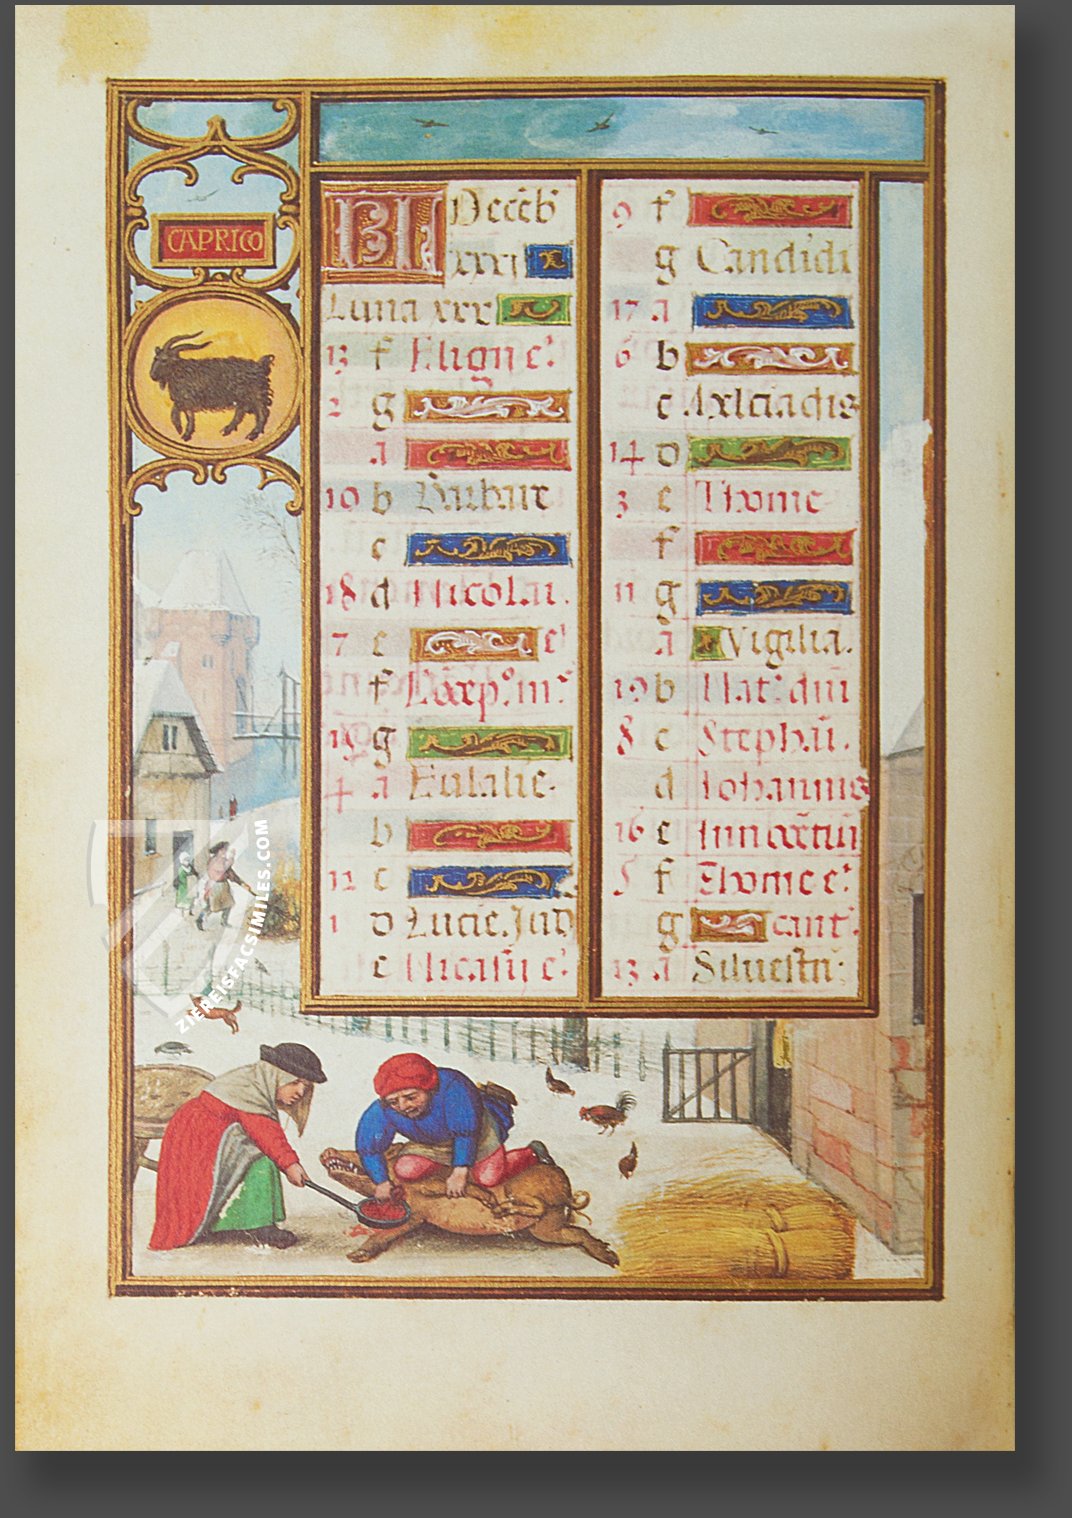 CAPRICO
KL Decēb
xxxj
Luna xxx
13 f Eligij eͬ.
2 g
a
10 b Barbare
c
18 d Nicolai.
7 e eͥ
f Cōcep.º mͬ.
g
4 a Eulalie.
b
12 c
1 d Lucie. Jud
e Nicasij eͬ.
9 f
g Candidi
17 a
6 b
c
14 d
3 e Thome
f
11 g
a Vigilia.
19 b Natͥ. dm̄i
8 c Stephāi.
d Iohannis
16 e Innocētiū
5 f Thome eͬ.
g cantͬ.
13 a Siluestri.
ZIEREISFACSIMILES.COM